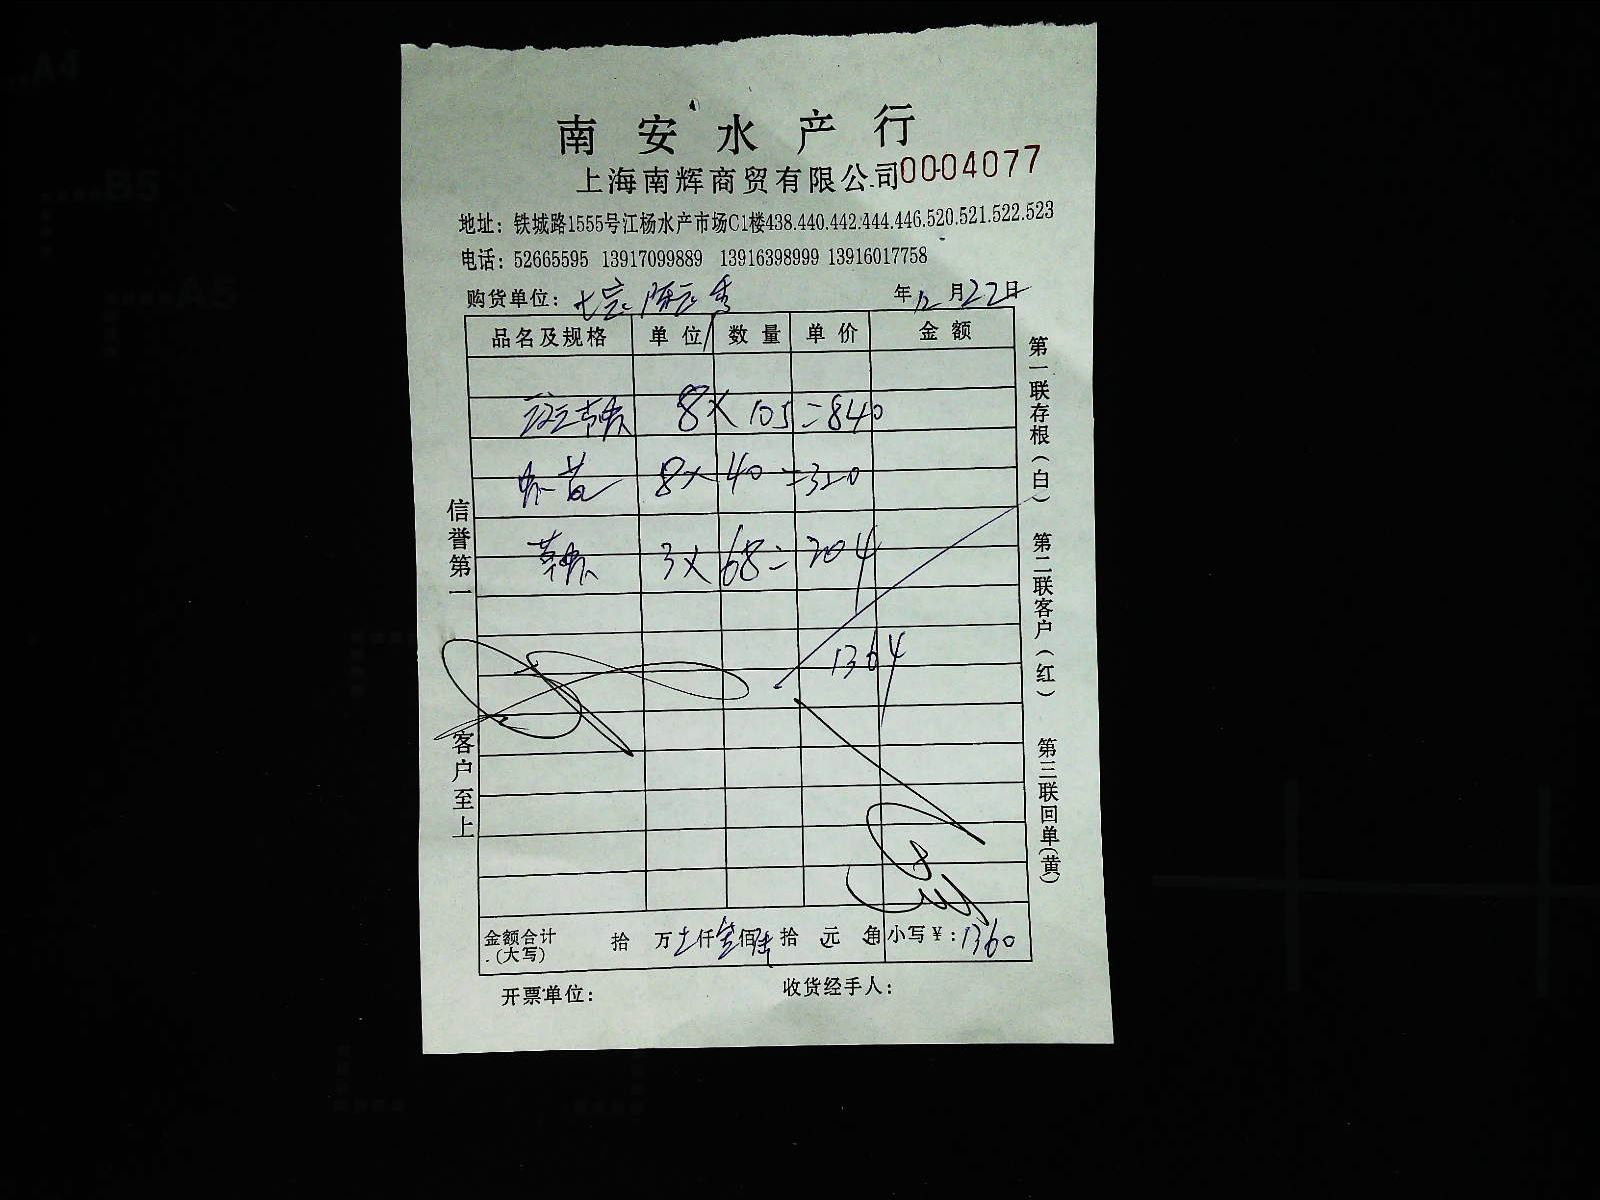 南安水产行
上海南辉商贸有限公司 0004077
地址：铁城路1555号江杨水产市场C1楼438.440.442.444.446.520.521.522.523
电话：52665595 13917099889 13916398999 13916017758
购货单位： 年12月22日
品名及规格 单位 数量 单价 金额
8×105=840
8×40=320
3×68=204
1364
金额合计(大写) 拾 万 仟 佰 拾 元 角 小写￥：1360
开票单位： 收货经手人：
信誉第一 客户至上
第一联存根（白） 第二联客户（红） 第三联回单(黄)